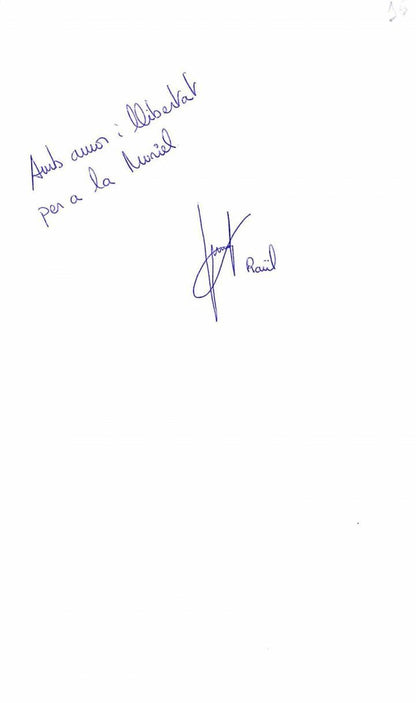 Amb amor i llibertat
per a la Muriel
Raül